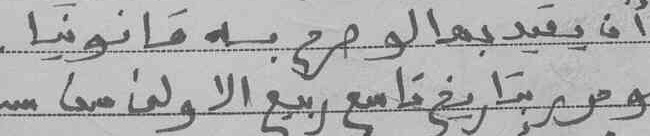 أن يفيد بها لو صرح به قانونيا.
وحرر بتاريخ تاسع ربيع الاولى من